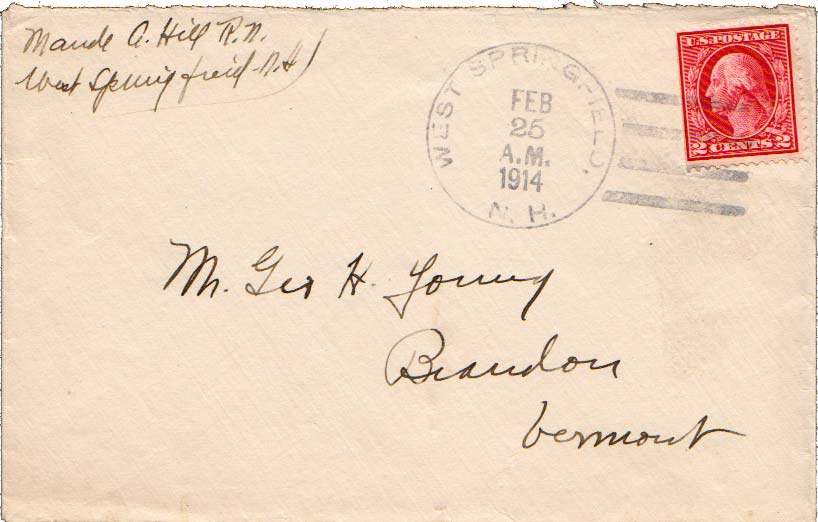 Maude A. Hill R.N.
West Springfield - N.H
WEST SPRINGFIELD,
FEB
25
A.M.
1914
N. H.
U.S. POSTAGE
2 CENTS 2
Mr. Geo H. Young
Brandon
Vermont